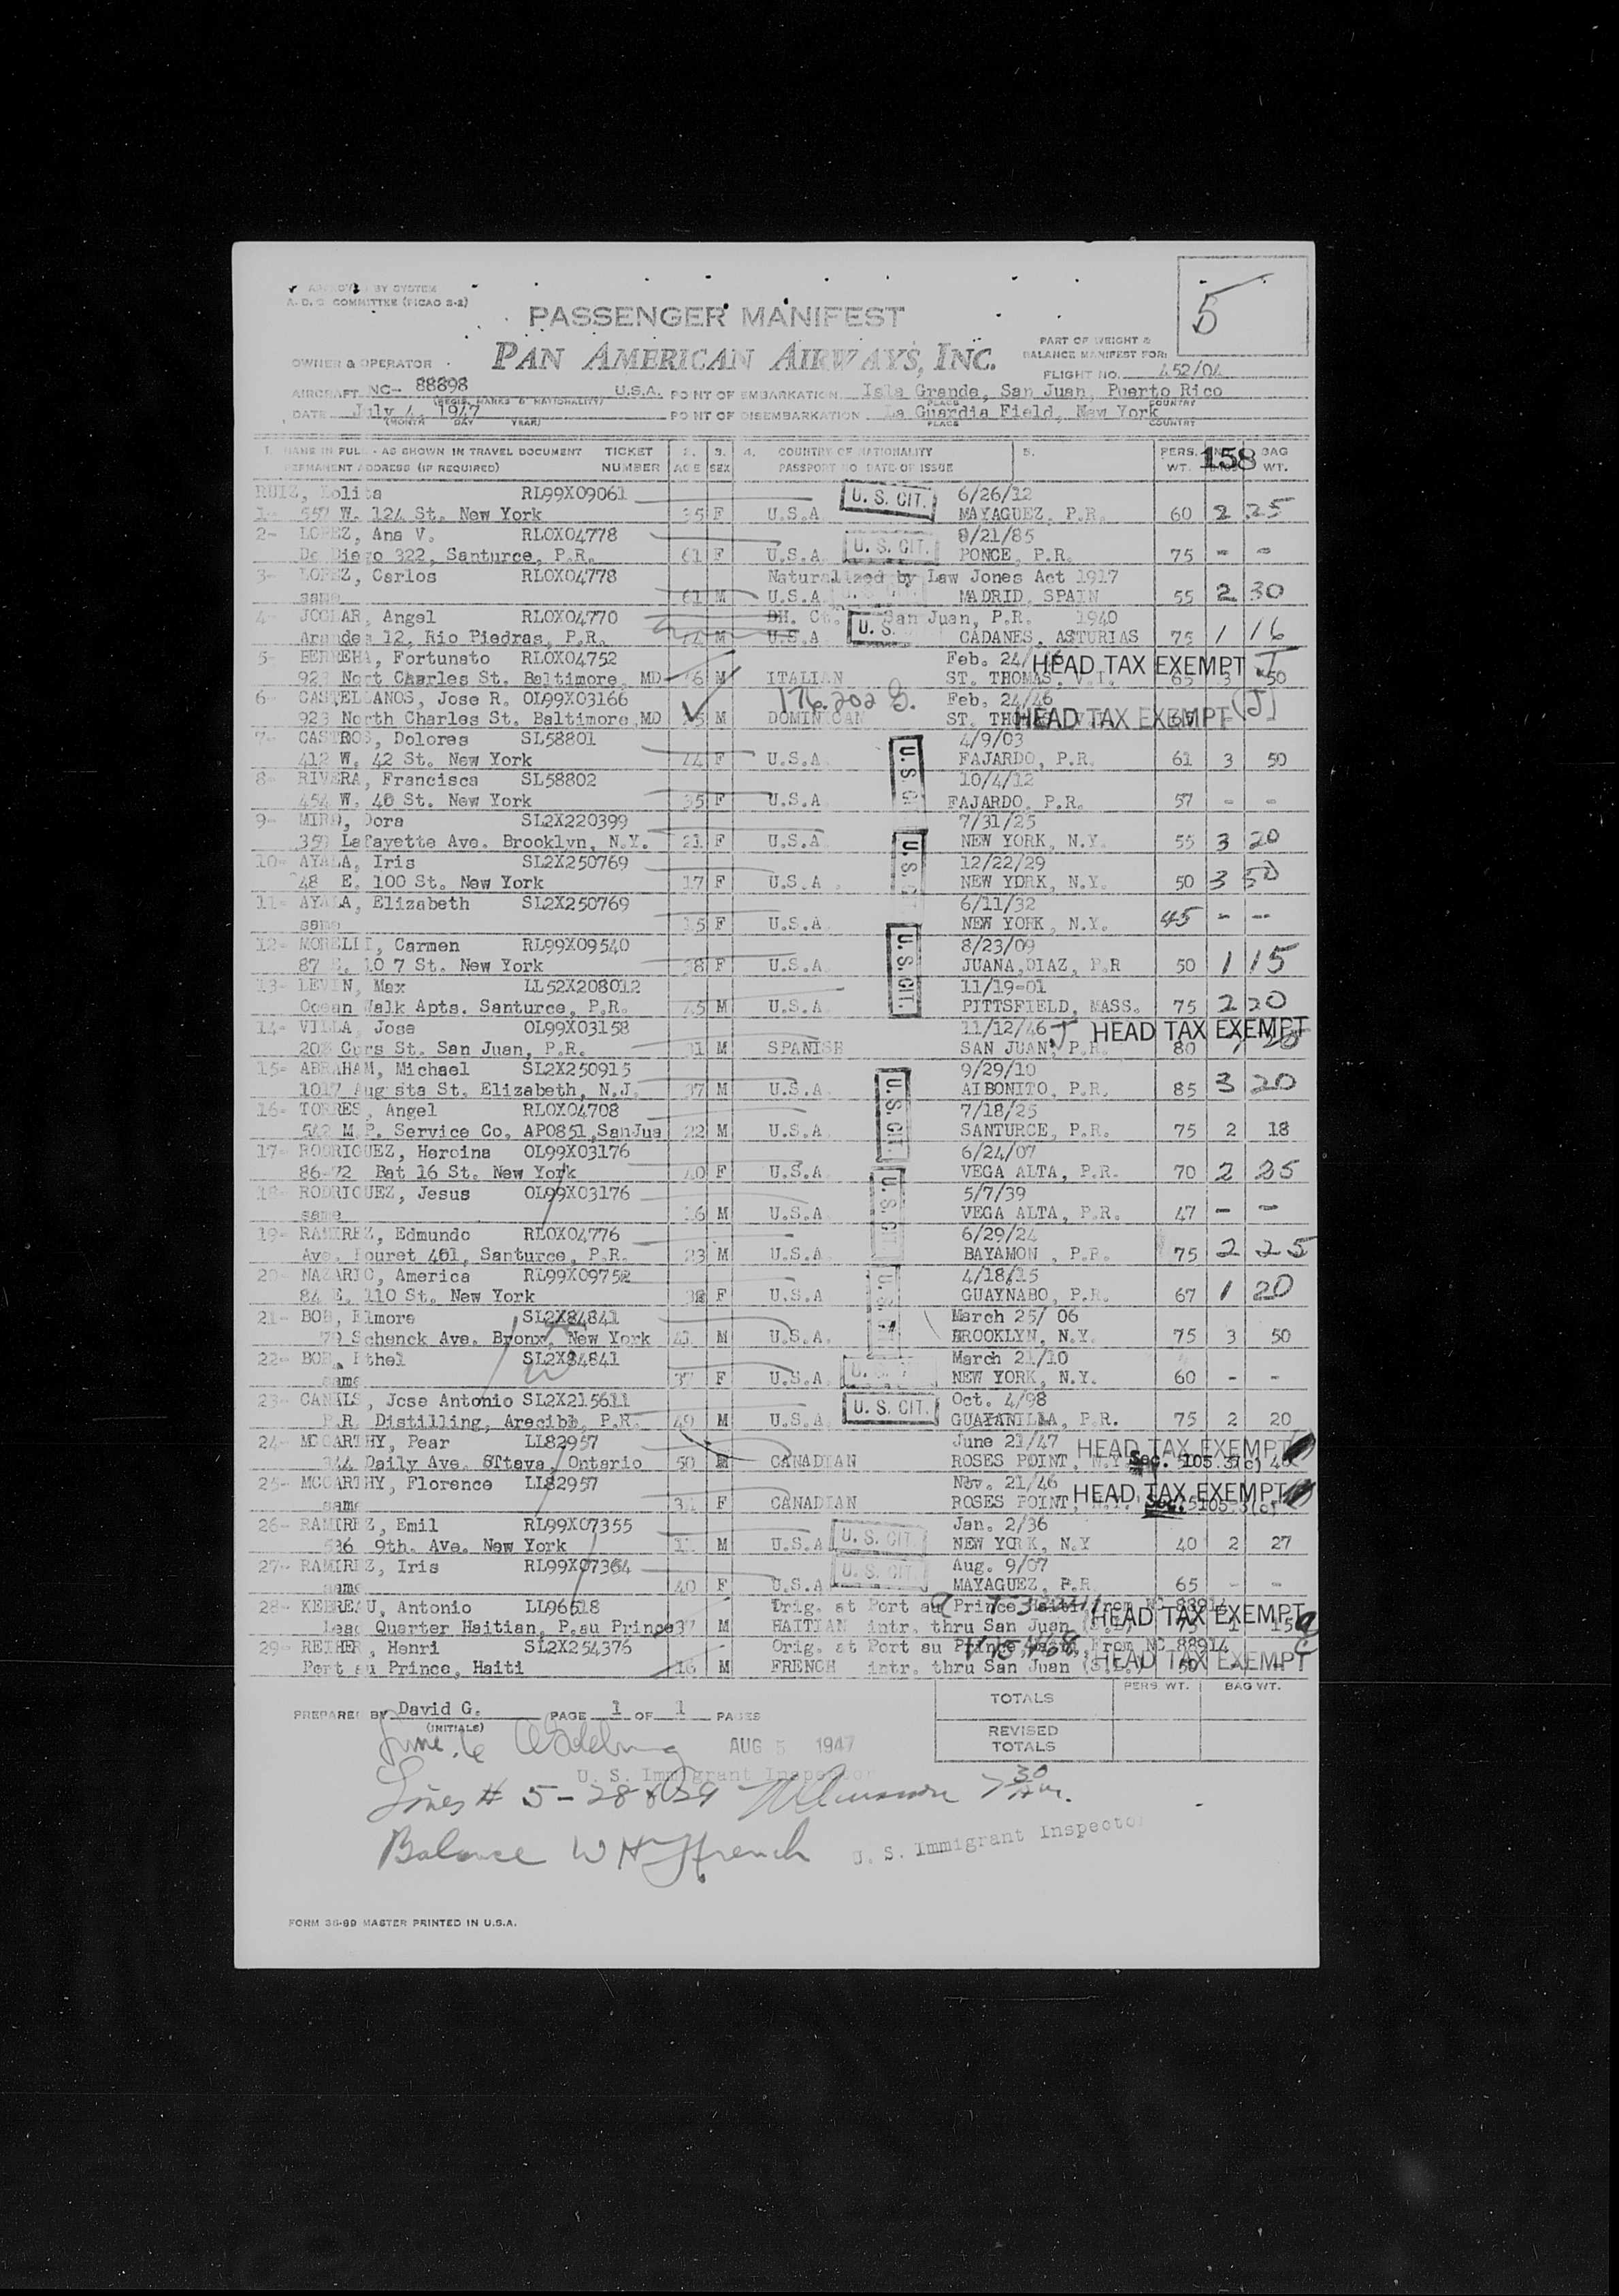 BY SYSTEM
A. D. C. COMMITTEE (PICAO S-2)
5
PASSENGER MANIFEST
PAN AMERICAN AIRWAYS, INC.
PART OF WEIGHT &
BALANCE MANIFEST FOR:
OWNER & OPERATOR
FLIGHT NO. 452/04
AIRCRAFT NC- 88898 U.S.A. POINT OF EMBARKATION Isla Grande, San Juan, Puerto Rico
(REGIS. MARKS & NATIONALITY) PLACE COUNTRY
DATE July 4, 1947 POINT OF DISEMBARKATION La Guardia Field, New York
(MONTH DAY YEAR) PLACE COUNTRY
1. NAME IN FULL - AS SHOWN IN TRAVEL DOCUMENT TICKET 2. 3. 4. COUNTRY OF NATIONALITY 5. PERS. 158 BAG
PERMANENT ADDRESS (IF REQUIRED) NUMBER AGE SEX PASSPORT NO DATE OF ISSUE WT. WT.
RUIZ, Lolita RL99X09061 U. S. CIT. 6/26/12
1- 557 W. 124 St. New York 35 F U.S.A MAYAGUEZ, P.R. 60 2 25
2- LOPEZ, Ana V. RLOX04778 U. S. CIT. 9/21/85
De Diego 322, Santurce, P.R. 61 F U.S.A PONCE, P.R. 75 - -
3- LOPEZ, Carlos RLOX04778 Naturalized by Law Jones Act 1917
same 61 M U.S.A MADRID, SPAIN 55 2 30
4- JOGLAR, Angel RLOX04770 San Juan, P.R. 1940
12, Rio Piedras, P.R. M U.S.A U. S. CADANES, ASTURIAS 75 1 16
5- Fortunato RLOX04752 Feb. 24/ HEAD TAX EXEMPT J
923 Nort Charles St. Baltimore, MD M ITALIAN ST. THOMAS, V.I. 65 3 50
6- CASTELLANOS, Jose R. OL99X03166 Feb. 24/46
923 North Charles St. Baltimore, MD M DOMINICAN HEAD TAX EXEMPT (J)
7- CASTROS, Dolores SL58801 4/9/03
412 W. 42 St. New York 44 F U.S.A U. S. CI FAJARDO, P.R. 61 3 50
8- RIVERA, Francisca SL58802 10/4/12
454 W. 40 St. New York 35 F U.S.A FAJARDO, P.R. 57 - -
9- MIRO, Dora SL2X220399 7/31/25
359 Lafayette Ave. Brooklyn, N.Y. 21 F U.S.A U. S. NEW YORK, N.Y. 55 3 20
10- AYALA, Iris SL2X250769 12/22/29
48 E. 100 St. New York 17 F U.S.A NEW YORK, N.Y. 50 3 50
11- AYALA, Elizabeth SL2X250769 6/11/32
same 15 F U.S.A NEW YORK, N.Y. 45 - --
12- MORELLI, Carmen RL99X09540 8/23/09
87 E. 10 7 St. New York 38 F U.S.A U. S. CIT. JUANA,DIAZ, P.R 50 1 15
13- LEVIN, Max LL52X208012 11/19-01
Ocean Walk Apts. Santurce, P.R. 45 M U.S.A PITTSFIELD, MASS. 75 2 20
14- VILLA, Jose OL99X03158 11/12/46 J HEAD TAX EXEMPT
St. San Juan, P.R. 31 M SPANISH SAN JUAN, P.R. 80
15- ABRAHAM, Michael SL2X250915 9/29/10
1017 Augusta St. Elizabeth, N.J. 37 M U.S.A. U. S. CIT. AIBONITO, P.R. 85 3 20
16- TORRES, Angel RLOX04708 7/18/25
542 M.P. Service Co, APO851,SanJua 22 M U.S.A. SANTURCE, P.R. 75 2 18
17- RODRIGUEZ, Heroina OL99X03176 6/24/07
86-72 Bat 16 St. New York 40 F U.S.A VEGA ALTA, P.R. 70 2 25
18- RODRIGUEZ, Jesus OL99X03176 U. S. CIT 5/7/39
same 16 M U.S.A VEGA ALTA, P.R. 47 - -
19- RAMIREZ, Edmundo RLOX04776 6/29/24
Ave. Pouret 401, Santurce, P.R. 23 M U.S.A. BAYAMON , P.R. 75 2 25
20- NAZARIO, America RL99X09752 4/18/15
84 E. 110 St. New York F U.S.A U.S. GUAYNABO, P.R. 67 1 20
21- BOB, Elmore SL2X84841 March 25/ 06
Schenck Ave. Bronx, New York 41 M U.S.A. BROOKLYN, N.Y. 75 3 50
22- BOB, Ethel SL2X84841 March 21/10
same 37 F U.S.A. NEW YORK, N.Y. 60 - -
23- CANALS, Jose Antonio SL2X215611 Oct. 4/98
P.R. Distilling, Arecibo, P.R. 49 M U.S.A. U. S. CIT. GUAYANILLA, P.R. 75 2 20
24- MCCARTHY, Pear LL82957 June 21/47 HEAD TAX EXEMPT
344 Daily Ave. OTtava, Ontario 50 M CANADIAN ROSES POINT, N.Y. Sec. 105.3(c)
25- MCCARTHY, Florence LL82957 Nov. 21/46 HEAD TAX EXEMPT
same F CANADIAN ROSES POINT, Sec. 105-3(c)
26- RAMIREZ, Emil RL99X07355 Jan. 2/36
9th. Ave. New York 11 M U.S.A U. S. CIT. NEW YORK, N.Y 40 2 27
27- RAMIREZ, Iris RL99X07364 Aug. 9/07
same 40 F U.S.A U. S. CIT. MAYAGUEZ, P.R 65 - -
28- KEBREAU, Antonio LL96518 Orig. at Port au Prince Haiti from NC 88914
Quarter Haitian, P.au Prince 37 M HAITIAN intr. thru San Juan HEAD TAX EXEMPT
29- REIHER, Henri SL2X254376 Orig. at Port au Prince, Haiti, From NC 88914
Port au Prince, Haiti 16 M FRENCH intr. thru San Juan HEAD TAX EXEMPT
PERS WT. BAG WT.
TOTALS
PREPARED BY David G. PAGE 1 OF 1 PAGES
(INITIALS)
REVISED
TOTALS
AUG 5 1947
U. S. Immigrant Inspector
Lines # 5-28 & 29 7 30 Am.
Balance W H French U. S. Immigrant Inspector
FORM 36-99 MASTER PRINTED IN U.S.A.